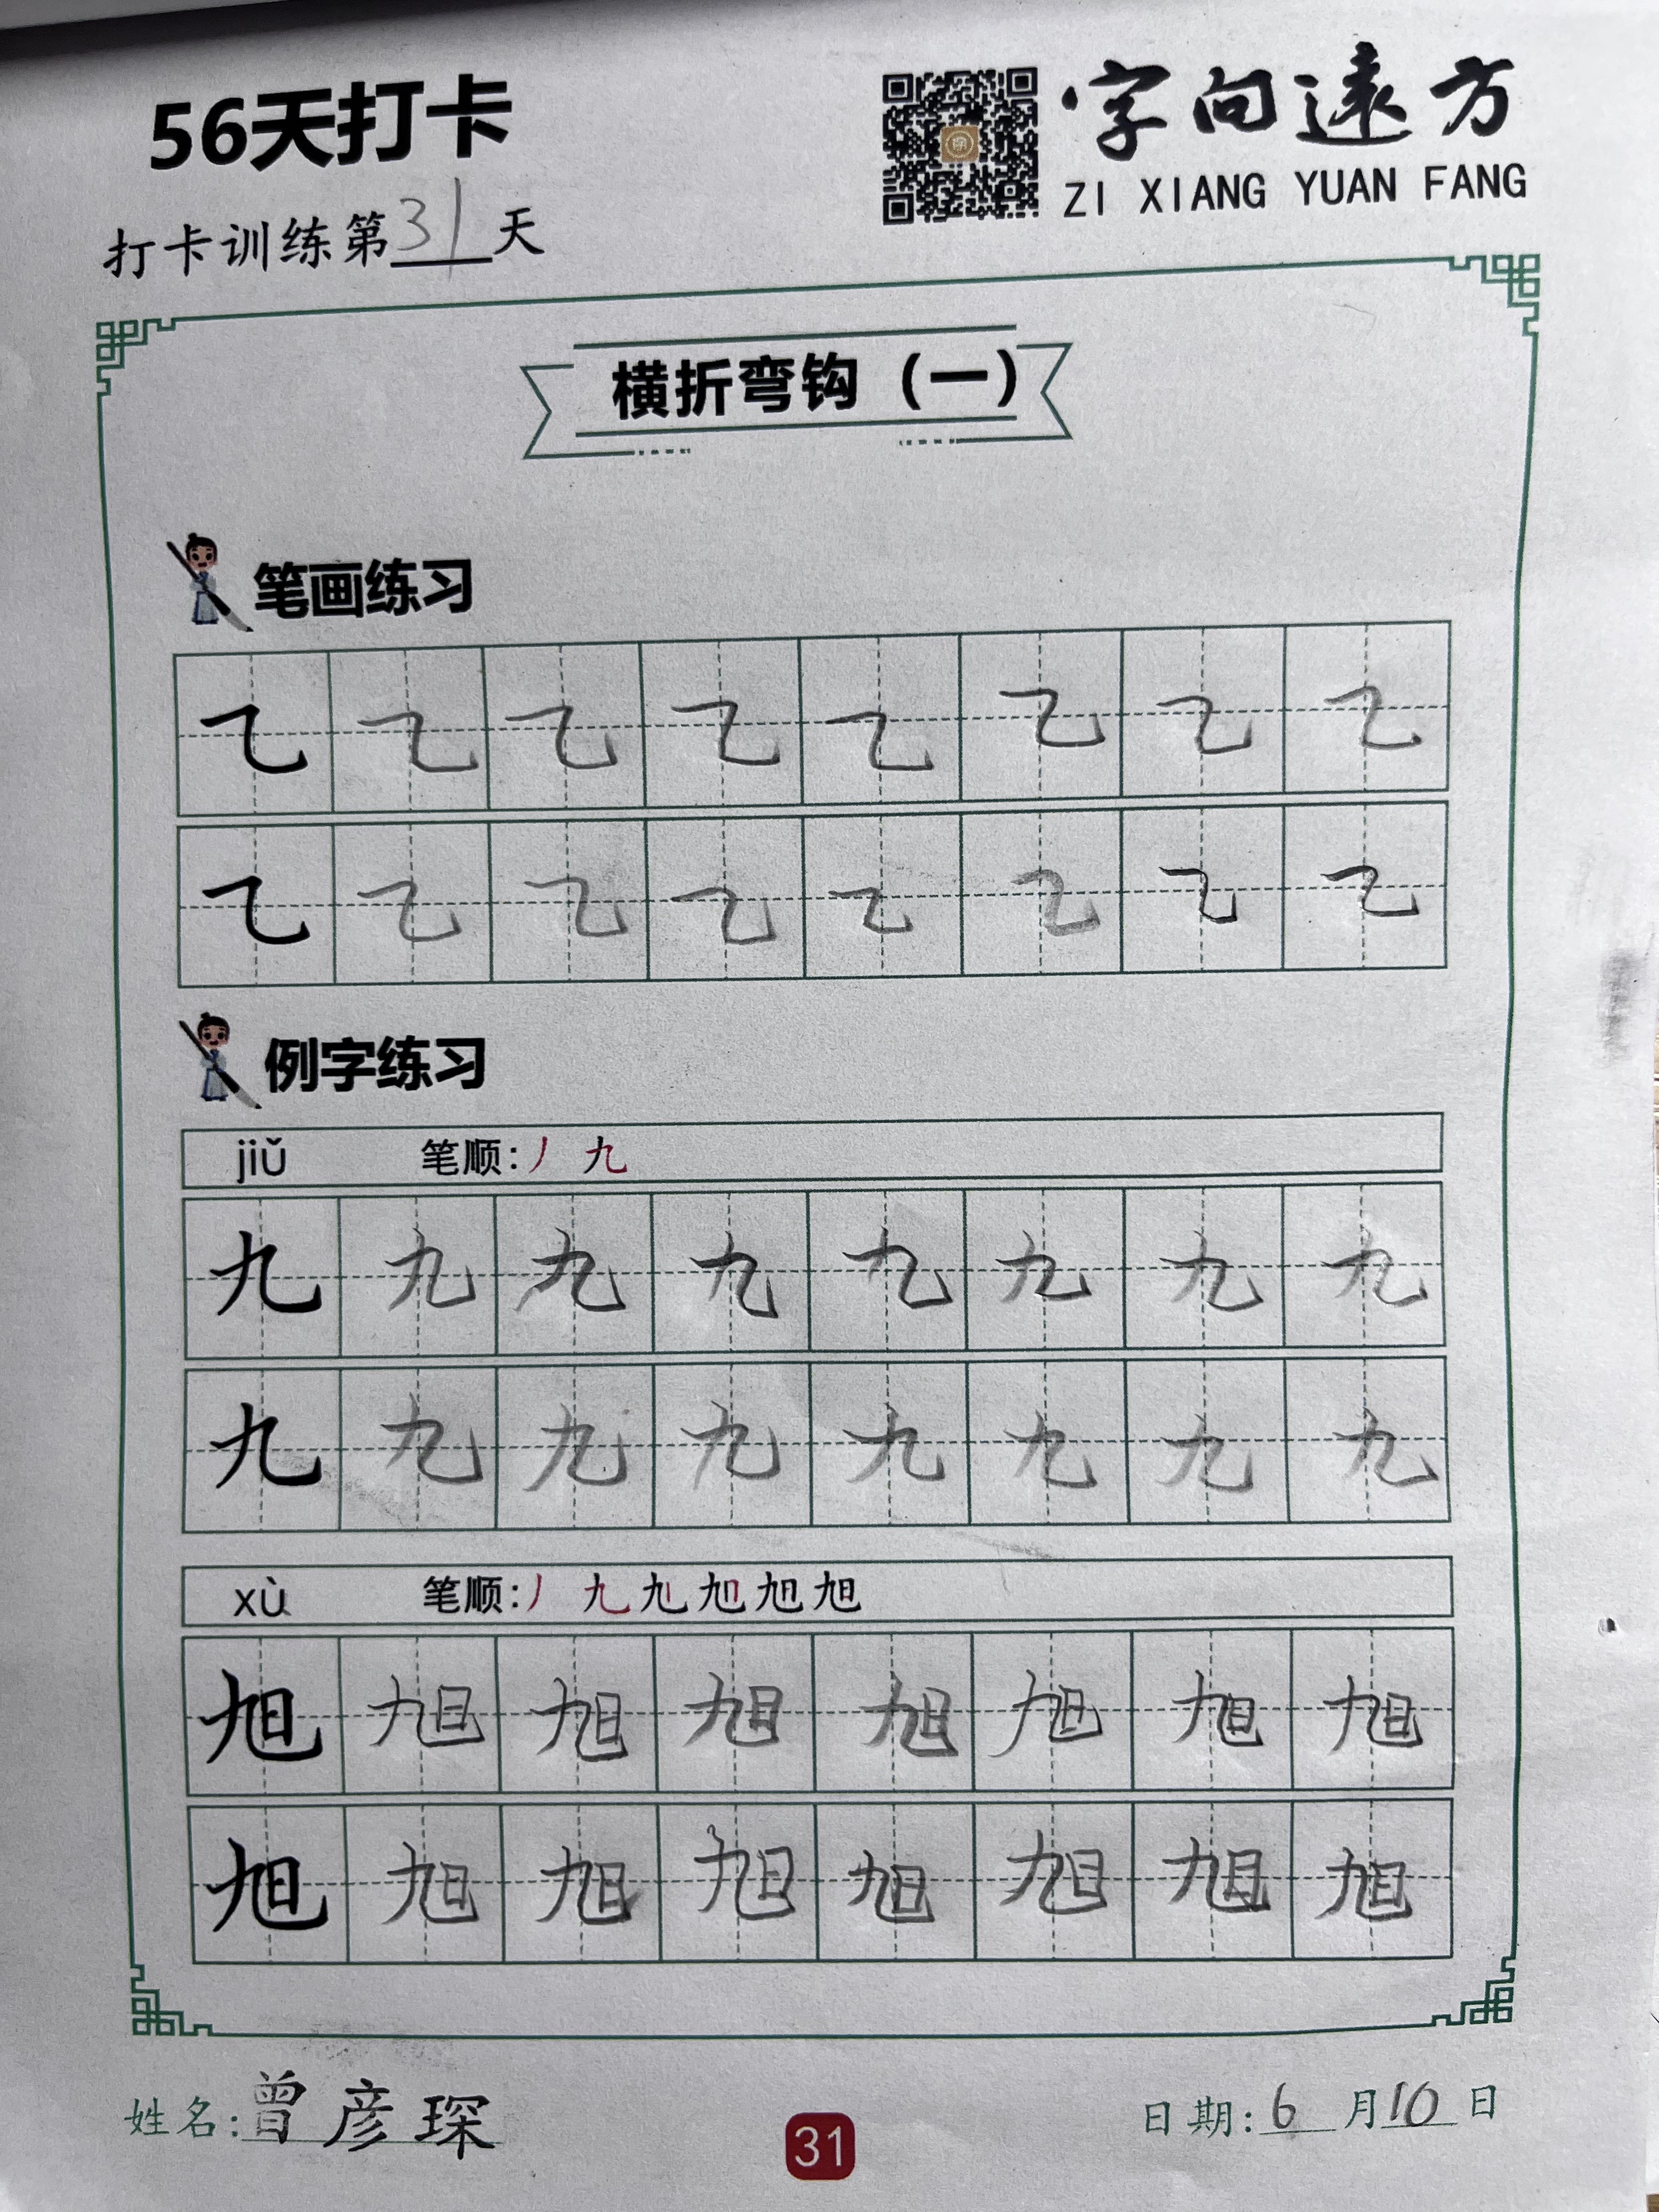 56天打卡
字向遠方
ZI XIANG YUAN FANG
打卡训练第31天
横折弯钩（一）
笔画练习
㇈ ㇈ ㇈ ㇈ ㇈ ㇈ ㇈ ㇈
㇈ ㇈ ㇈ ㇈ ㇈ ㇈ ㇈ ㇈
例字练习
jiǔ 笔顺：丿 九
九 九 九 九 九 九 九 九
九 九 九 九 九 九 九 九
xù 笔顺：丿 九 旭 旭 旭 旭
旭 旭 旭 旭 旭 旭 旭 旭
旭 旭 旭 旭 旭 旭 旭 旭
姓名：曾彦琛
31
日期：6月10日